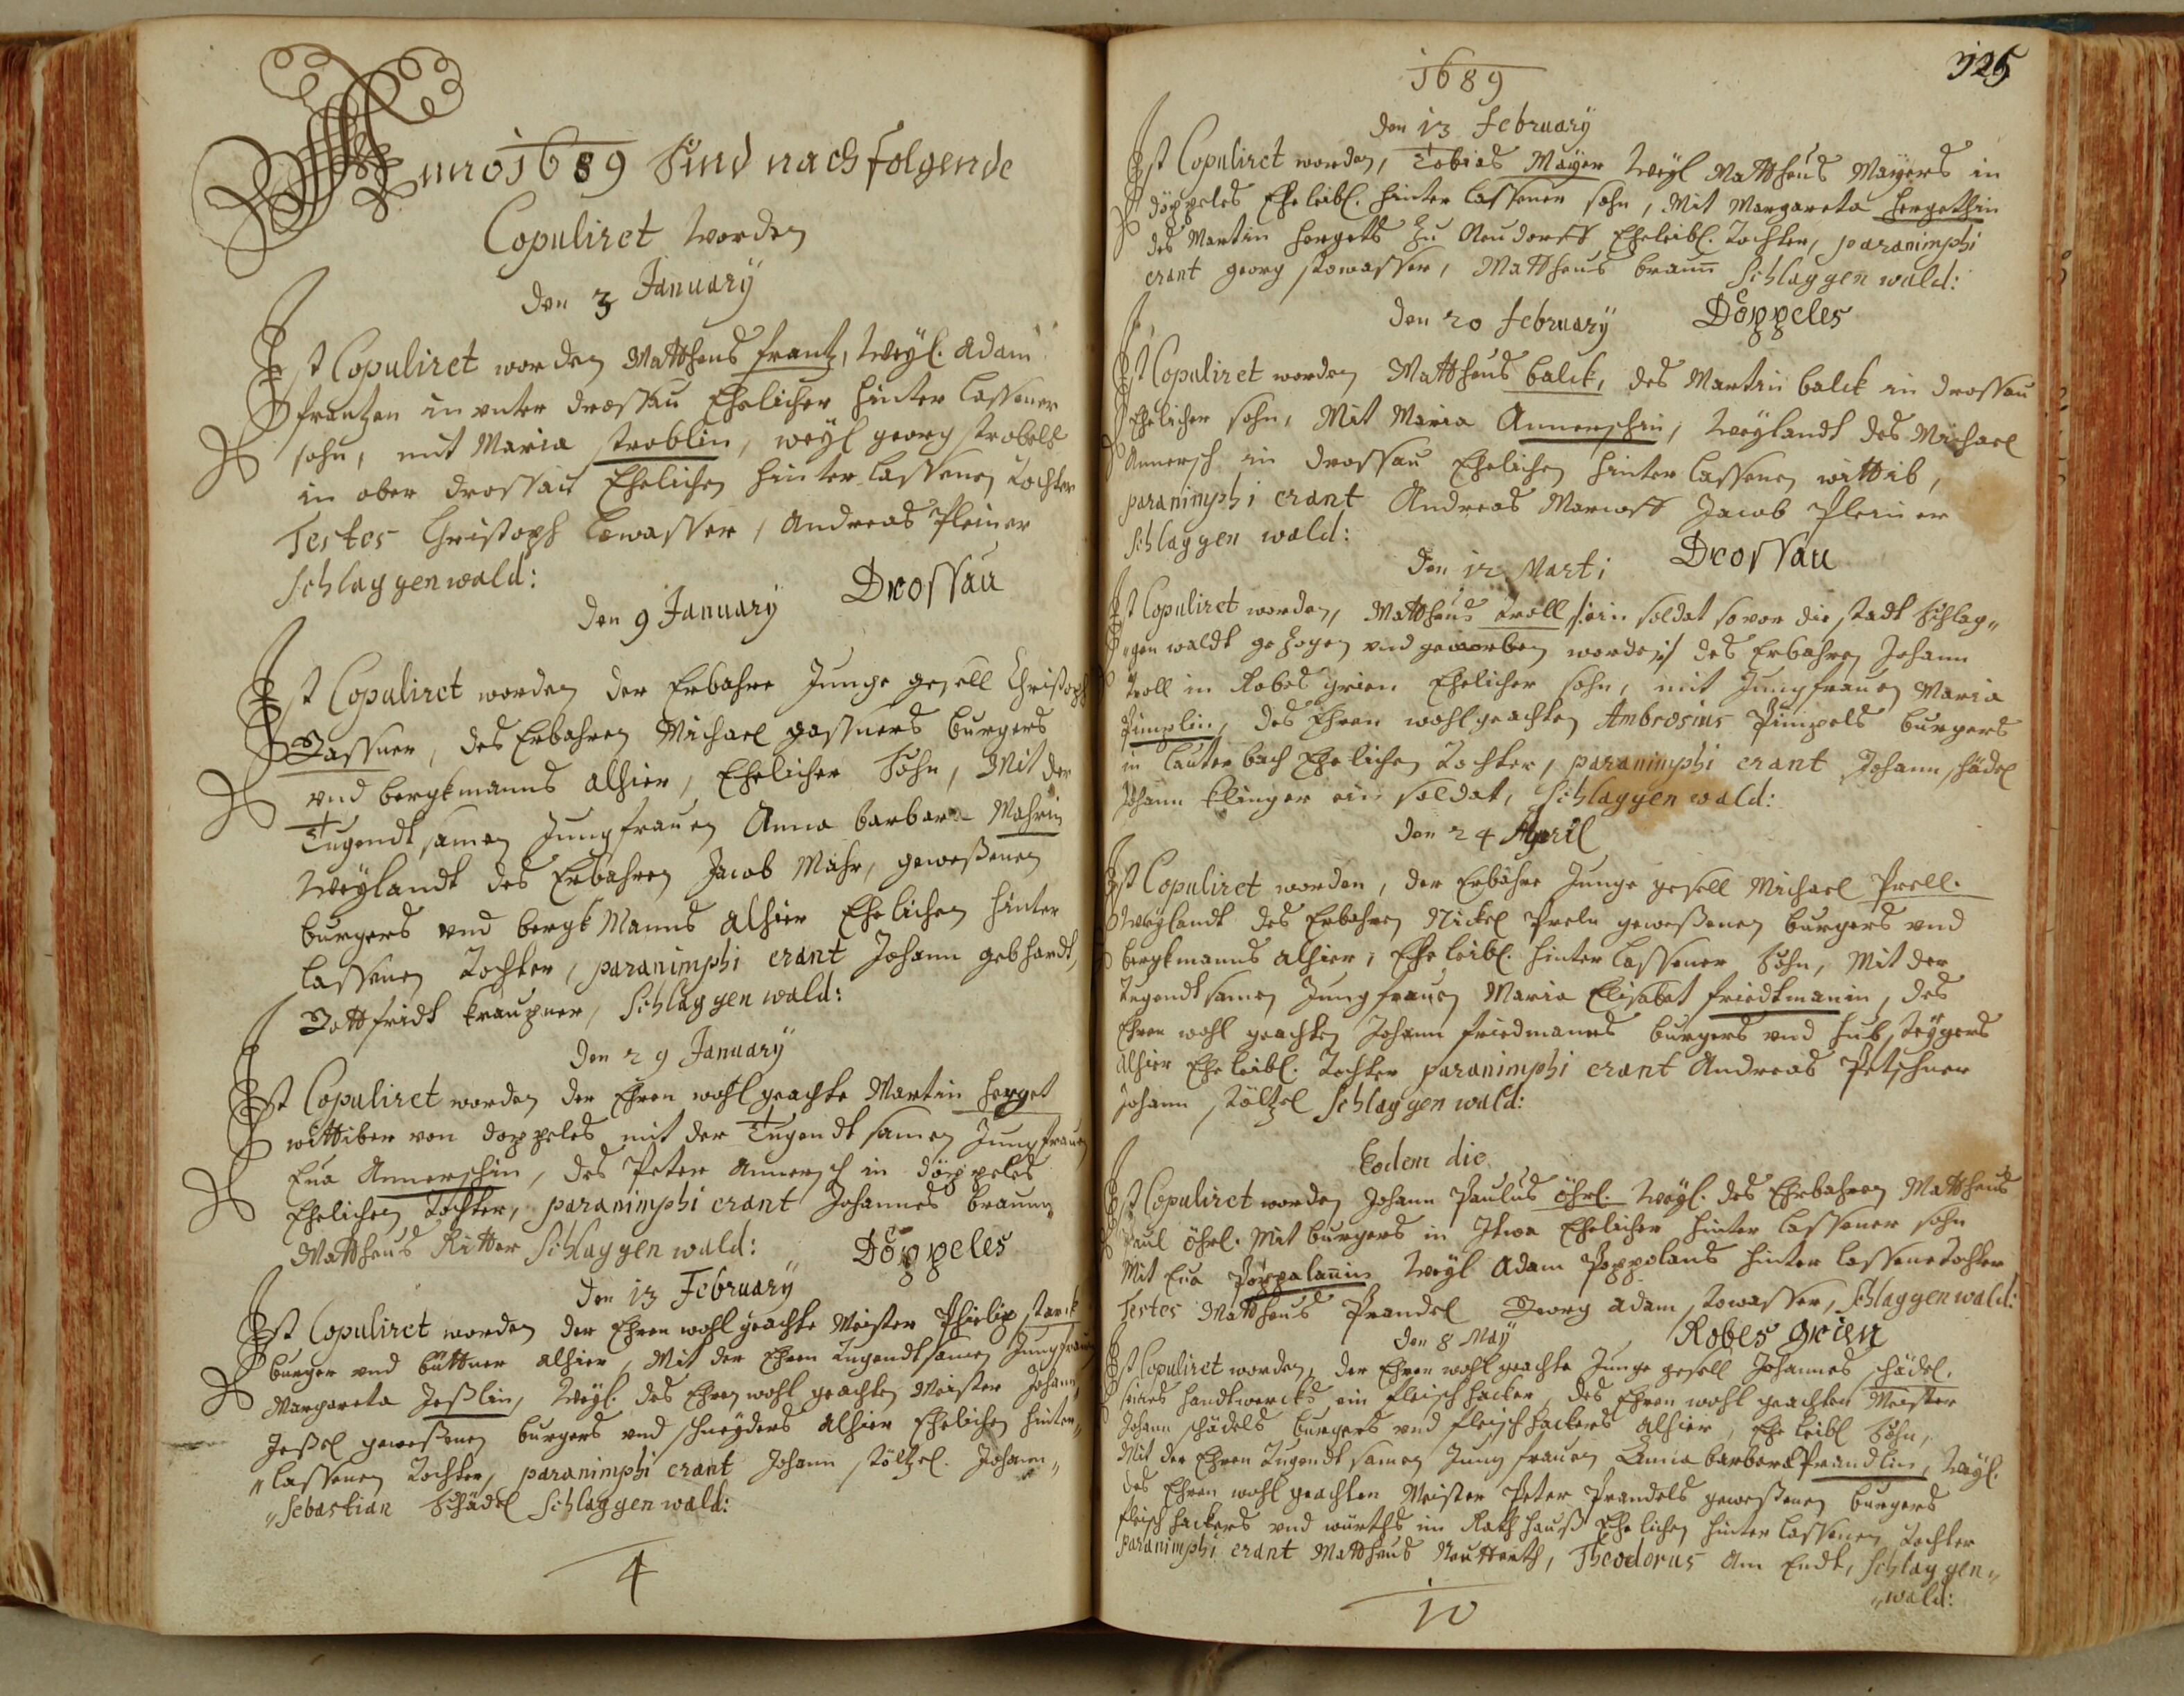 Anno 1689 Sind nachfolgende
Copuliret worden
den 3 January
Ist Copuliret worden Mattheus frantz, Weyl. Adam
frantzen in unter drossau Ehelicher hinter lassener
sohn, mit Maria stroblin, weyl georg strobels
in ober drossau Ehelichen hinter lassenen tochter
Testes Christoph Lowasser, Andreas Pleiner
Schlaggenwald:
Drossau
den 9 January
Ist Copuliret worden der Erbahre Junge gesell Christoph
Gassner, des Erbahren Michael gassners burgers
und bergkmanns alhier, Ehelicher Sohn, Mit der
Tugendtsamen Jungfrauen Anna barbara Mahrin
Weylandt des Erbahren Jacob Mahr, geweßenen
burgers und bergk Manns alhier Ehelichen hinter
lassenen Tochter, paranimphi erant Johann gebhardt,
Gottfridt kraupner, Schlaggenwald:
den 29 January
Ist Copuliret worden der Ehren wohl geachte Martin herget
wittiber von döppeles mit der Tugendt samen Jungfrauen
Eva Annerschin, des Peter Annersch in döppeles
Ehelichen Tochter, paranimphi erant Johannes braunn,
Mattheus Ritter Schlaggenwald:
Döppeles
den 13 February
Ist Copuliret worden der Ehren wohl geachte Meister Philip starck
burger und büttner alhier, Mit der Ehren Tugendtsamen Jungfrauen
Margareta Jeßlin, Weyl. des Ehren wohl geachten Meister Johann
Jeßel geweßenen burgers und schneyders alhier Ehelichen hinter„
„lassenen Tochter, paranimphi erant Johann stöltzel. Johann„
„Sebastian Schädel Schlaggenwald:
4
125
1689
den 13 february
Ist Copuliret worden, Tobias Mayer Weyl Mattheus Mayers in
döppeles Eheleibl. hinter lassener sohn, Mit Margareta hergethin
des Martin hergets zu Neudorff Eheleibl. Tochter, paranimphi
erant georg stowasser, Mattheus braun Schlaggenwald:
Döppeles
den 20 february
Ist Copuliret worden Mattheus balck, des Martin balck in drossau
Ehelicher sohn, Mit Maria Annerschin, Weylandt des Michael
Annersch in drossau Ehelichen hinter lassenen wittib,
paranimphi erant Andreas Jacob Pleiner
Schlaggen wald:
Drossau
den 12 Marti
Ist Copuliret worden, Mattheus troll /:ein soldat so vor die stadt Schlag„
„gen waldt gezogen und geworben worden:/ des Erbahren Johann
troll in Robes grien Ehelicher sohn, mit Jungfrauen Maria
Pimplin, des Ehren wohl geachten Ambrosius Pimpels burgers
in Lauterbach Ehelichen Tochter, paranimphi erant Johann schädel
Johann klinger ein soldat, Schlaggenwald:
den 24 April
Ist Copuliret worden, der Erbahre Junge gesell Michael Prell.
Weylandt des Erbahren Nickel Preln geweßenen burgers und
bergkmanns alhier, Eheleibl. hinterlassener Sohn, Mit der
Tugendt samen Jungfrauen Maria Elisabet friedtmanin, des
Ehren wohl geachten Johann friedmanns burgers und
alhier Eheleibl. Tochter paranimphi erant Andreas Petschner
Johann stöltzel Schlaggenwald:
Eodem die
Ist Copuliret worden Johann Paulus öhrl. Weyl. des Ehrbahren Mattheus
Paul öhrl. Mit burgers in Ehelicher hinter lassener sohn
Mit Eva Poppalanin Weyl Adam Poppolans hinter lassene Tochter
Testes Mattheus Prandel Georg adam stowasser, Schlaggenwald:
Robes grien
den 8 May
Ist Copuliret worden, der Ehren wohl geachte Junge gesell Johannes schädel,
seines handtwercks ein fleischhacker, des Ehren wohl geachten Meister
Johann schädels burgers und fleischhackers alhier, Eheleibl Sohn,
Mit der Ehren Tugendt samen Jung frauen Anna barbara Prandlin, Weyl.
des Ehren wohl geachten Meister Peter Prandels geweßenen burgers
fleischhackers und würths im Rath hauß Ehelichen hinter lassenen Tochter
paranimphi erant Mattheus Theodorus Am Endt, Schlaggen„
„wald:
10